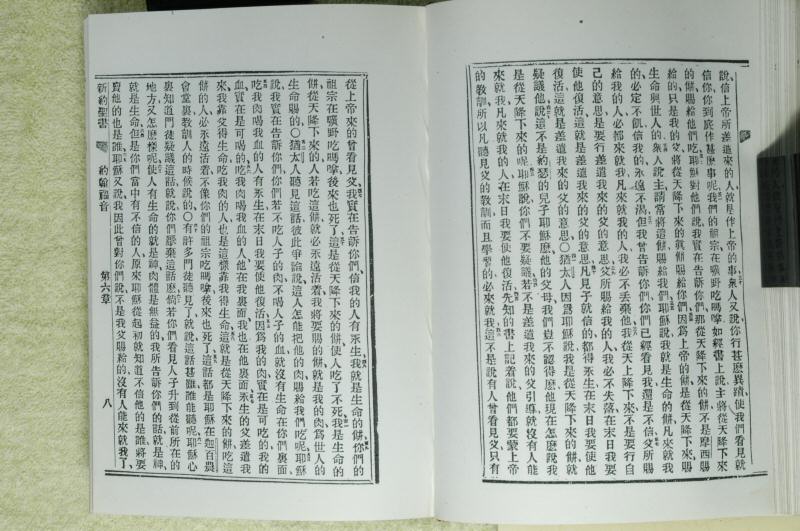 說、信上帝所差遣來的人、就是作上帝的事、衆人又說、你行甚麽異蹟、使我們看見就
信你、你到底作甚麽事呢、我們的祖宗在曠野吃嗎拿、如經書上說、主將從天降下來
的餅、賜給他們吃、耶穌對他們說、我實在告訴你們、那從天降下來的餅、不是摩西賜
給的、只是我的父、將從天降下來的眞餅賜給你們、因爲上帝的餅、是從天降下來、賜
生命與世人的、衆人說、主請常將這餅賜給我們、耶穌說、我就是生命的餅、凡來就我
的必定不飢、信我的永遠不渴、但我曾告訴你們、你們已經看見我、還是不信、父所賜
給我的人、必都來就我、凡來就我的人、我必不丟棄他、我從天上降下來、不是要行自
己的意思、是要行差遣我來的父的意思、父所賜給我的人、我必不失落、在末日我要
使他復活、這就是差遣我來的父的意思、凡見子就信的、都得永生、在末日我要使他
復活、這就是差遣我來的父的意思、○猶太人因爲耶穌說、我是從天降下來的餅、就
疑議他、說、這不是約瑟的兒子耶穌麽、他的父母、我們豈不認得麽、他現在怎麽說、我
是從天降下來的呢、耶穌說、你們不要疑議、若不是差遣我來的父引導、就沒有人能
來就我、凡來就我的人、在末日我要使他復活、先知的書上記着說、他們都要蒙上帝
的教訓、所以凡聽見父的教訓、而且學習的、必來就我、這不是說有人曾看見父、只有
從上帝來的曾看見父、我實在告訴你們、信我的人有永生、我就是生命的餅、你們的
祖宗在曠野吃嗎拿、後來也死了、這是從天降下來的餅、使人吃了不死、我是生命的
餅、從天降下來的、人若吃這餅、就必永遠活着、我將要賜的餅、就是我的肉、爲世人的
生命賜的、○猶太人聽見這話、彼此爭論說、這人怎能把他的肉賜給我們吃呢、耶穌
說、我實在告訴你們、你們若不吃人子的肉、不喝人子的血、就沒有生命在你們裏面、
吃我肉喝我血的人有永生、在末日我要使他復活、因爲我的肉實在是可吃的、我的
血實在是可喝的、吃我肉喝我血的人、他在我裏面、我也在他裏面、永生的父差遣我
來、我靠父得生命、吃我肉的人、也是這樣靠我得生命、這就是從天降下來的餅、吃這
餅的人必永遠活着、不像你們的祖宗吃嗎拿、後來也死了、這話都是耶穌在迦百農
會堂裏教訓人的時候說的、○有許多門徒聽見了就說、這話甚難、誰能聽呢、耶穌心
裏知道門徒疑議這話、就說、你們厭棄這話麽、倘若你們看見人子升到從前所在的
地方、又怎麽樣呢、使人有生命的就是神、肉體是無益的、我所告訴你們的話、就是神、
就是生命、但是你們當中有不信的人、原來耶穌從起初就知道不信他的是誰、將要
賣他的也是誰、耶穌又說、我因此曾對你們說、不是我父賜給的、沒有人能來就我了、
新約聖書 約翰福音 第六章 八